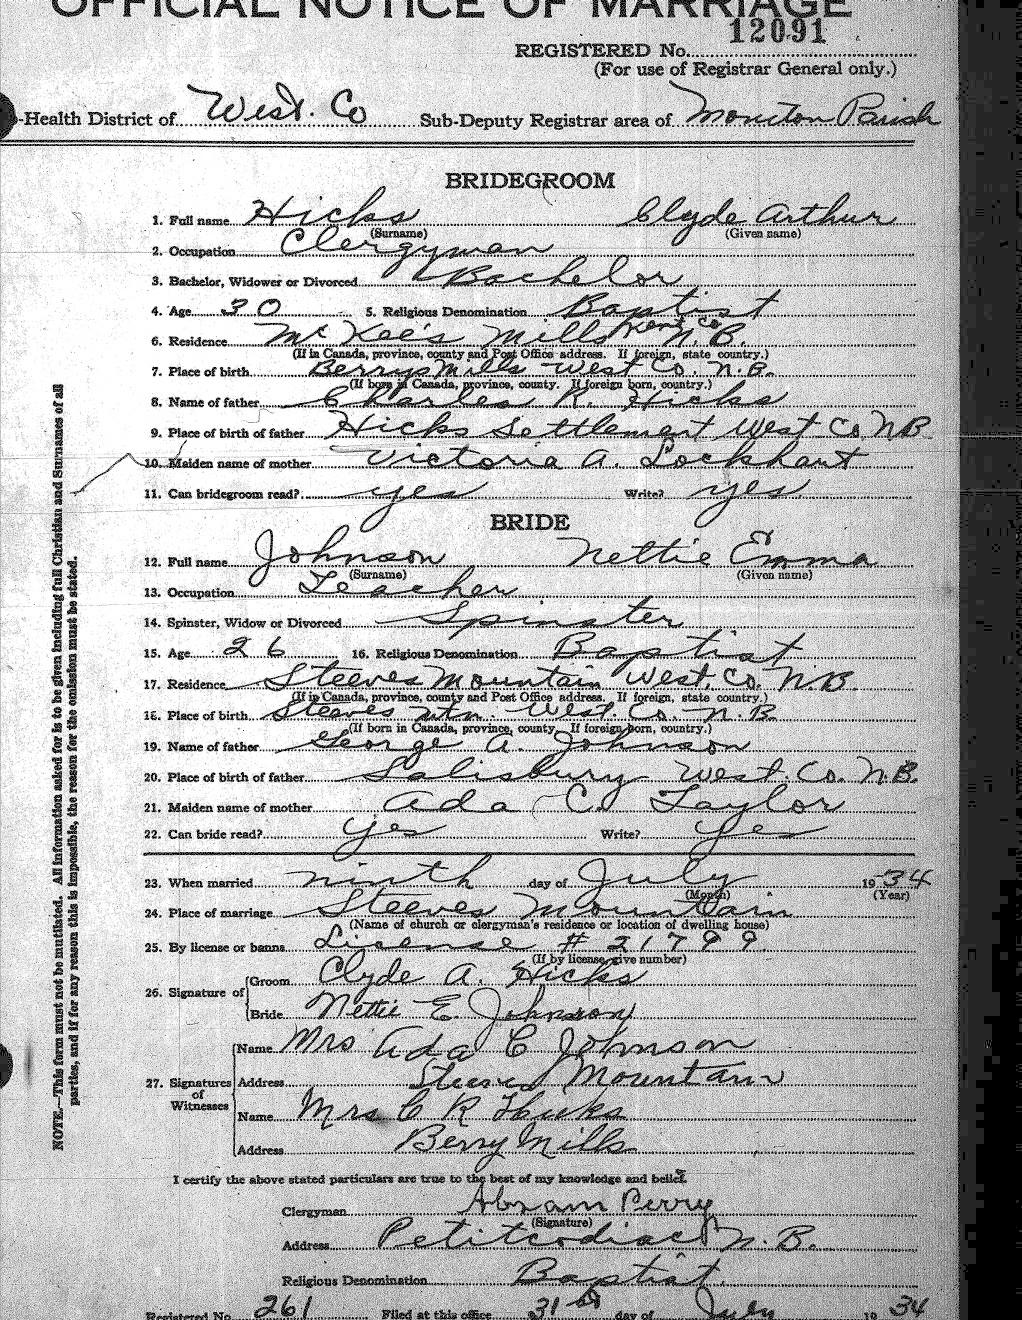 OFFICIAL NOTICE OF MARRIAGE
12091
REGISTERED No.
(For use of Registrar General only.)
-Health District of West. Co Sub-Deputy Registrar area of Moncton Parish
BRIDEGROOM
1. Full name Hicks Clyde Arthur
(Surname) (Given name)
2. Occupation Clergyman
3. Bachelor, Widower or Divorced Bachelor
4. Age 30 5. Religious Denomination Baptist
6. Residence McKee's Mills Kent Co N.B.
(If in Canada, province, county and Post Office address. If foreign, state country.)
7. Place of birth Berrys Mills West Co. N.B.
(If born in Canada, province, county. If foreign born, country.)
8. Name of father Charles R. Hicks
9. Place of birth of father Hicks Settlement West Co. NB
10. Maiden name of mother Victoria A. Lockhart
11. Can bridegroom read? yes Write? yes
BRIDE
12. Full name Johnson Nettie Emma
(Surname) (Given name)
13. Occupation Teacher
14. Spinster, Widow or Divorced Spinster
15. Age 26 16. Religious Denomination Baptist
17. Residence Steeves Mountain West. Co. N.B.
(If in Canada, province, county and Post Office address. If foreign, state country.)
18. Place of birth Steeves Mtn. West. Co. N.B.
(If born in Canada, province, county. If foreign born, country.)
19. Name of father George A. Johnson
20. Place of birth of father Salisbury West. Co. N.B.
21. Maiden name of mother Ada C. Taylor
22. Can bride read? yes Write? yes
23. When married ninth day of July 1934
(Month) (Year)
24. Place of marriage Steeves Mountain
(Name of church or clergyman's residence or location of dwelling house)
25. By license or banns License # 21799
(If by license, give number)
26. Signature of
Groom Clyde A. Hicks
Bride Nettie E. Johnson
27. Signatures of Witnesses
Name Mrs Ada C Johnson
Address Steeves Mountain
Name Mrs C R Hicks
Address Berry Mills
I certify the above stated particulars are true to the best of my knowledge and belief.
Clergyman Abram Perry
(Signature)
Address Petitcodiac N.B.
Religious Denomination Baptist
Registered No. 261 Filed at this office 31st day of July 1934
NOTE.—This form must not be mutilated. All information asked for is to be given including full Christian and Surnames of all
parties, and if for any reason this is impossible, the reason for the omission must be stated.